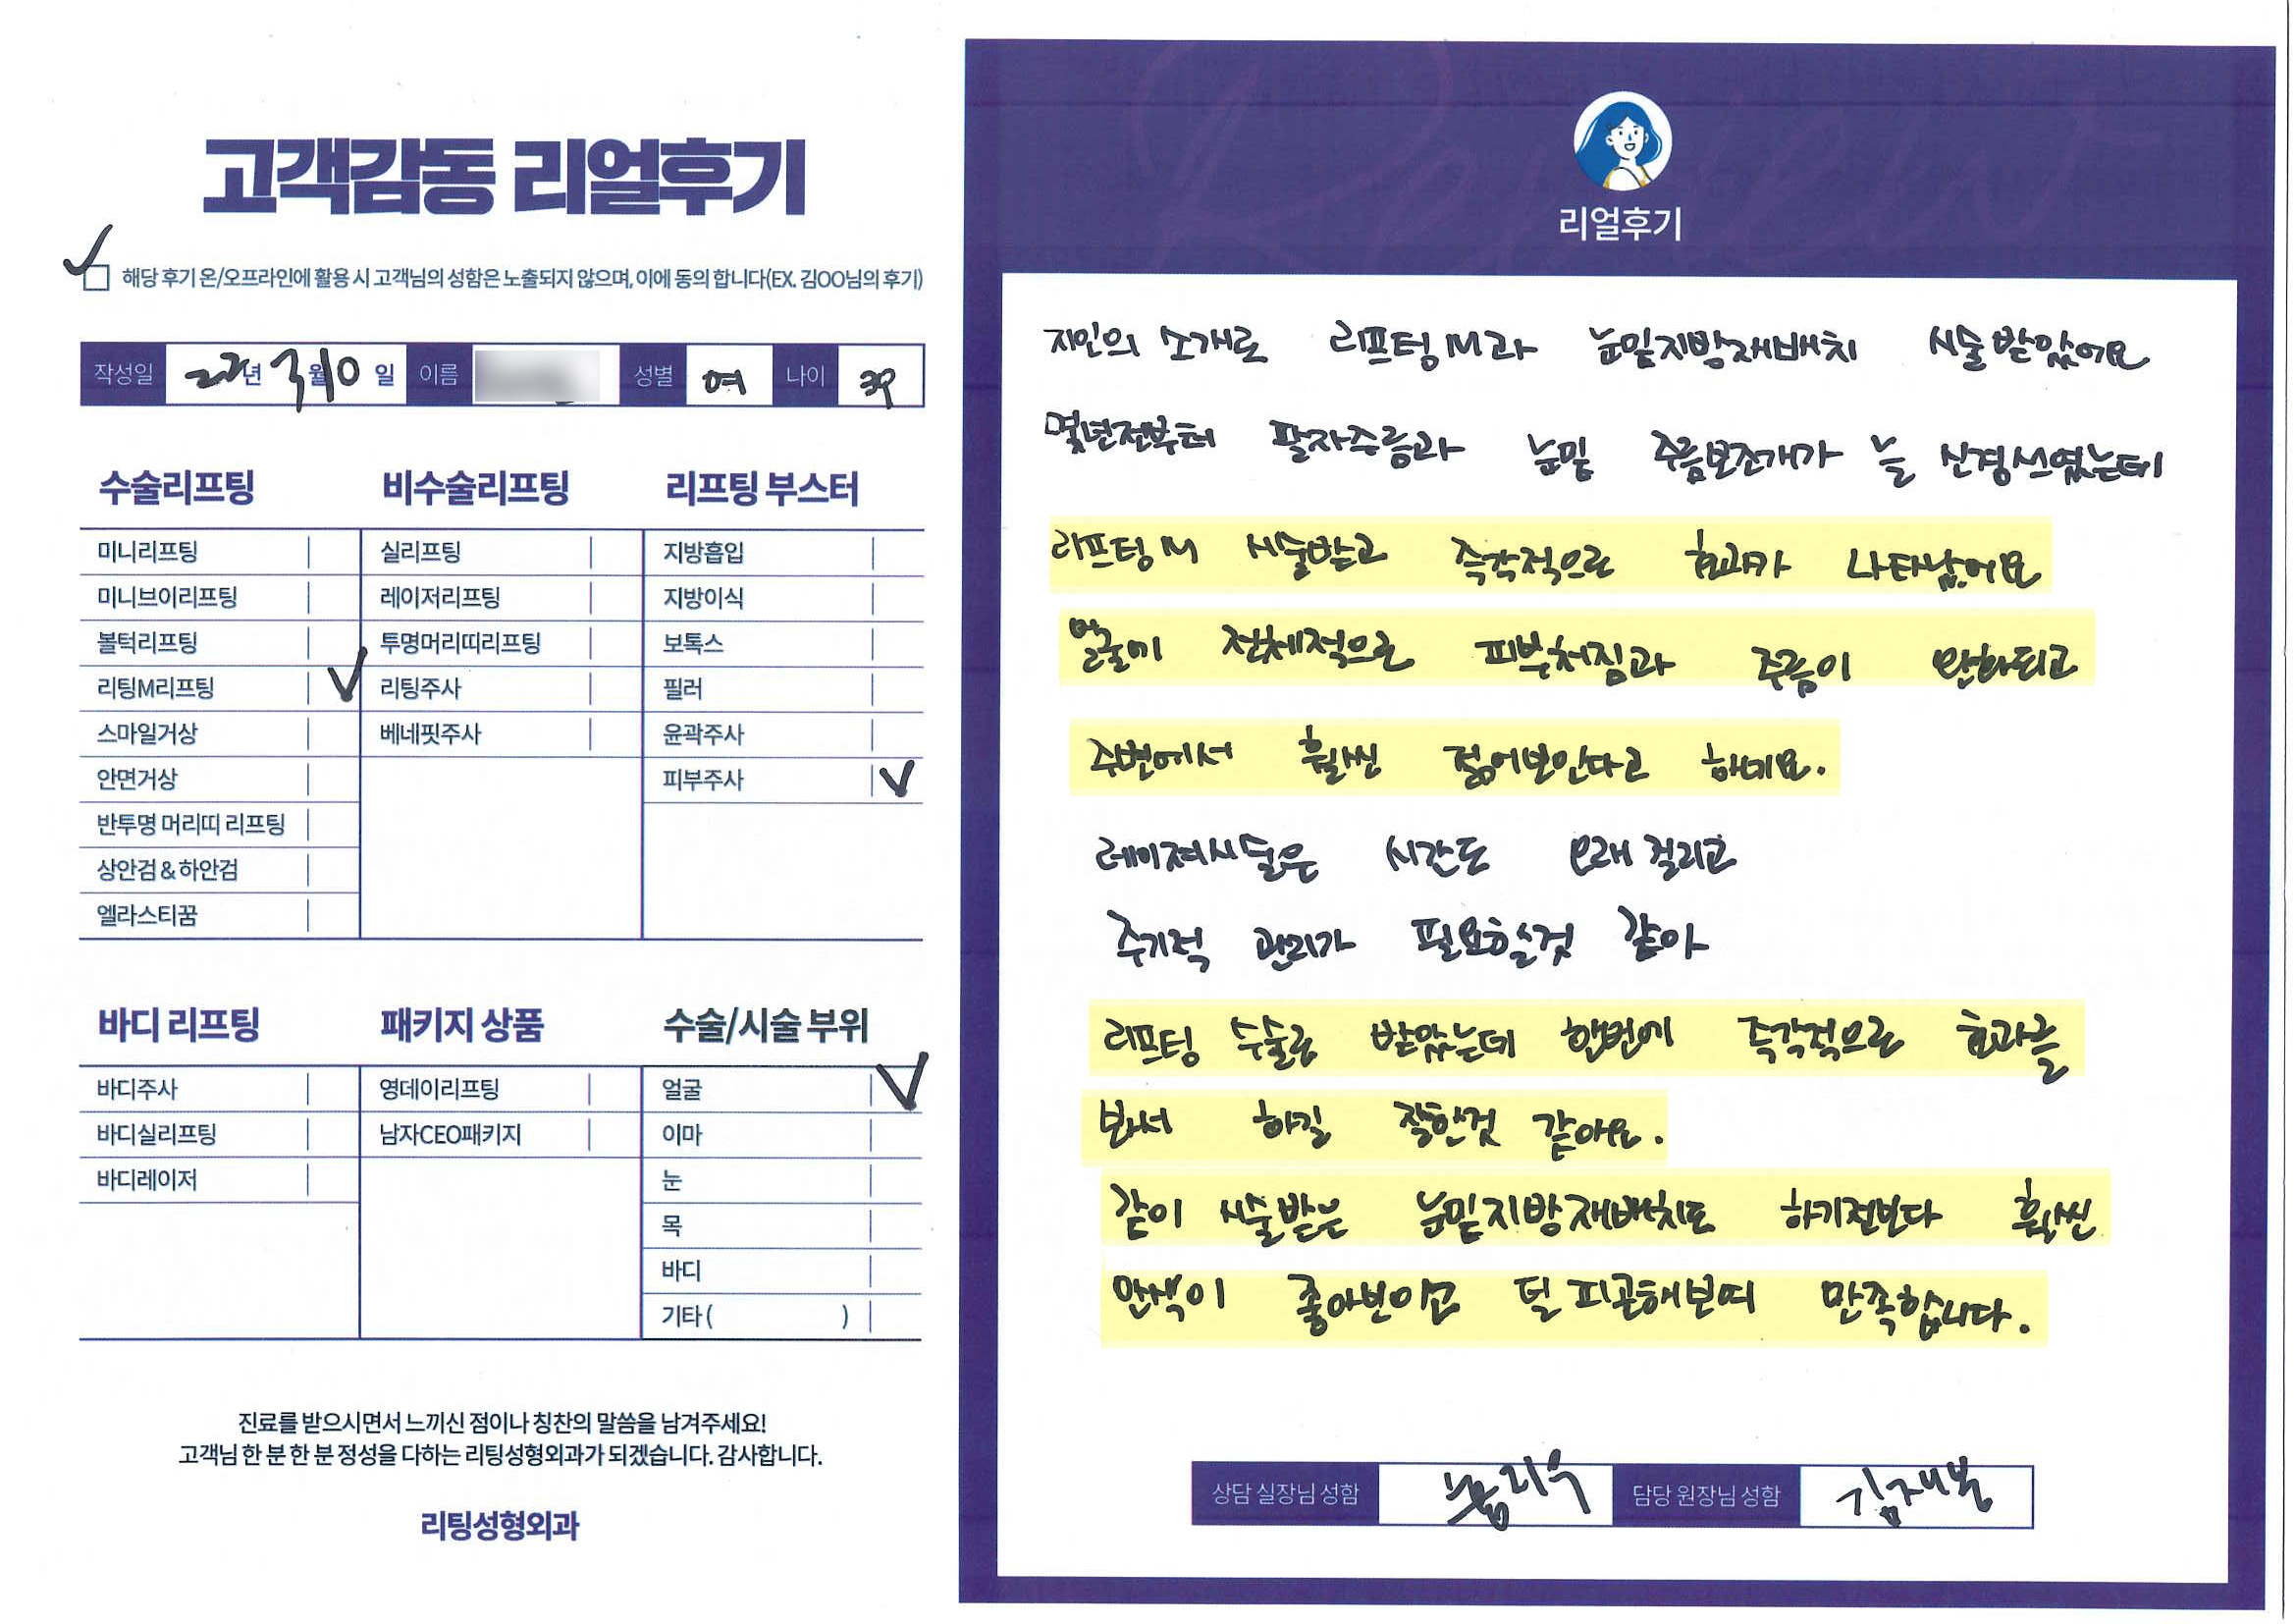 고객감동 리얼후기
해당 후기 온/오프라인에 활용 시 고객님의 성함은 노출되지 않으며, 이에 동의 합니다(EX. 김OO님의 후기)
작성일 22년 3월 10일 이름 성별 여 나이 39
수술리프팅
미니리프팅
미니브이리프팅
볼턱리프팅
리팅M리프팅
스마일거상
안면거상
반투명 머리띠 리프팅
상안검 & 하안검
엘라스티꿈
비수술리프팅
실리프팅
레이저리프팅
투명머리띠리프팅
리팅주사
베네핏주사
리프팅 부스터
지방흡입
지방이식
보톡스
필러
윤곽주사
피부주사
바디 리프팅
바디주사
바디실리프팅
바디레이저
패키지 상품
영데이리프팅
남자CEO패키지
수술/시술 부위
얼굴
이마
눈
목
바디
기타 ( )
진료를 받으시면서 느끼신 점이나 칭찬의 말씀을 남겨주세요!
고객님 한 분 한 분 정성을 다하는 리팅성형외과가 되겠습니다. 감사합니다.
리팅성형외과
리얼후기
지인의 소개로 리프팅M과 눈밑지방재배치 시술받았어요
몇년전부터 팔자주름과 눈밑 주름보조개가 늘 신경쓰였는데
리프팅M 시술받고 즉각적으로 효과가 나타났어요
얼굴에 전체적으로 피부처짐과 주름이 완화되고
주변에서 훨씬 젊어보인다고 하네요.
레이져시술은 시간도 오래 걸리고
주기적 관리가 필요할것 같아
리프팅 수술로 받았는데 한번에 즉각적으로 효과를
봐서 하길 잘한것 같아요.
같이 시술받은 눈밑지방재배치도 하기전보다 훨씬
안색이 좋아보이고 덜 피곤해보여 만족합니다.
상담 실장님 성함
담당 원장님 성함 김재봉